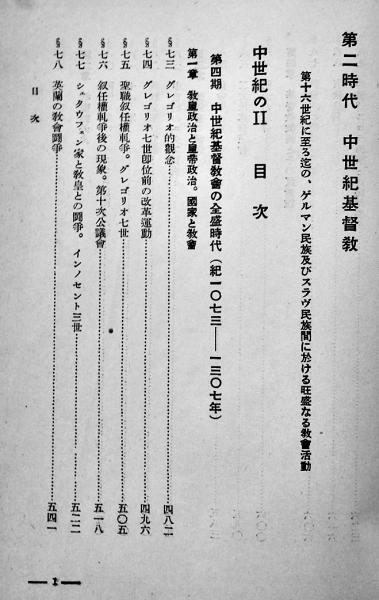 第二時代　中世紀基督敎
第十六世紀に至る迄の、ゲルマン民族及びスラヴ民族間に於ける旺盛なる敎會活動
中世紀のII　目次
第四期　中世紀基督敎會の全盛時代（紀一〇七三――一三〇七年）
第一章　敎皇政治と皇帝政治。國家と敎會
§七三　グレゴリオ的觀念……四八二
§七四　グレゴリオ七世卽位前の改革運動……四九六
§七五　聖職叙任權軋爭。グレゴリオ七世……五〇五
§七六　叙任權軋爭後の現象。第十次公議會……五一八
§七七　シュタウフェン家と敎皇との鬪爭。インノセント三世……五二二
§七八　英蘭の敎會鬪爭……五四一
目次
― 1 ―